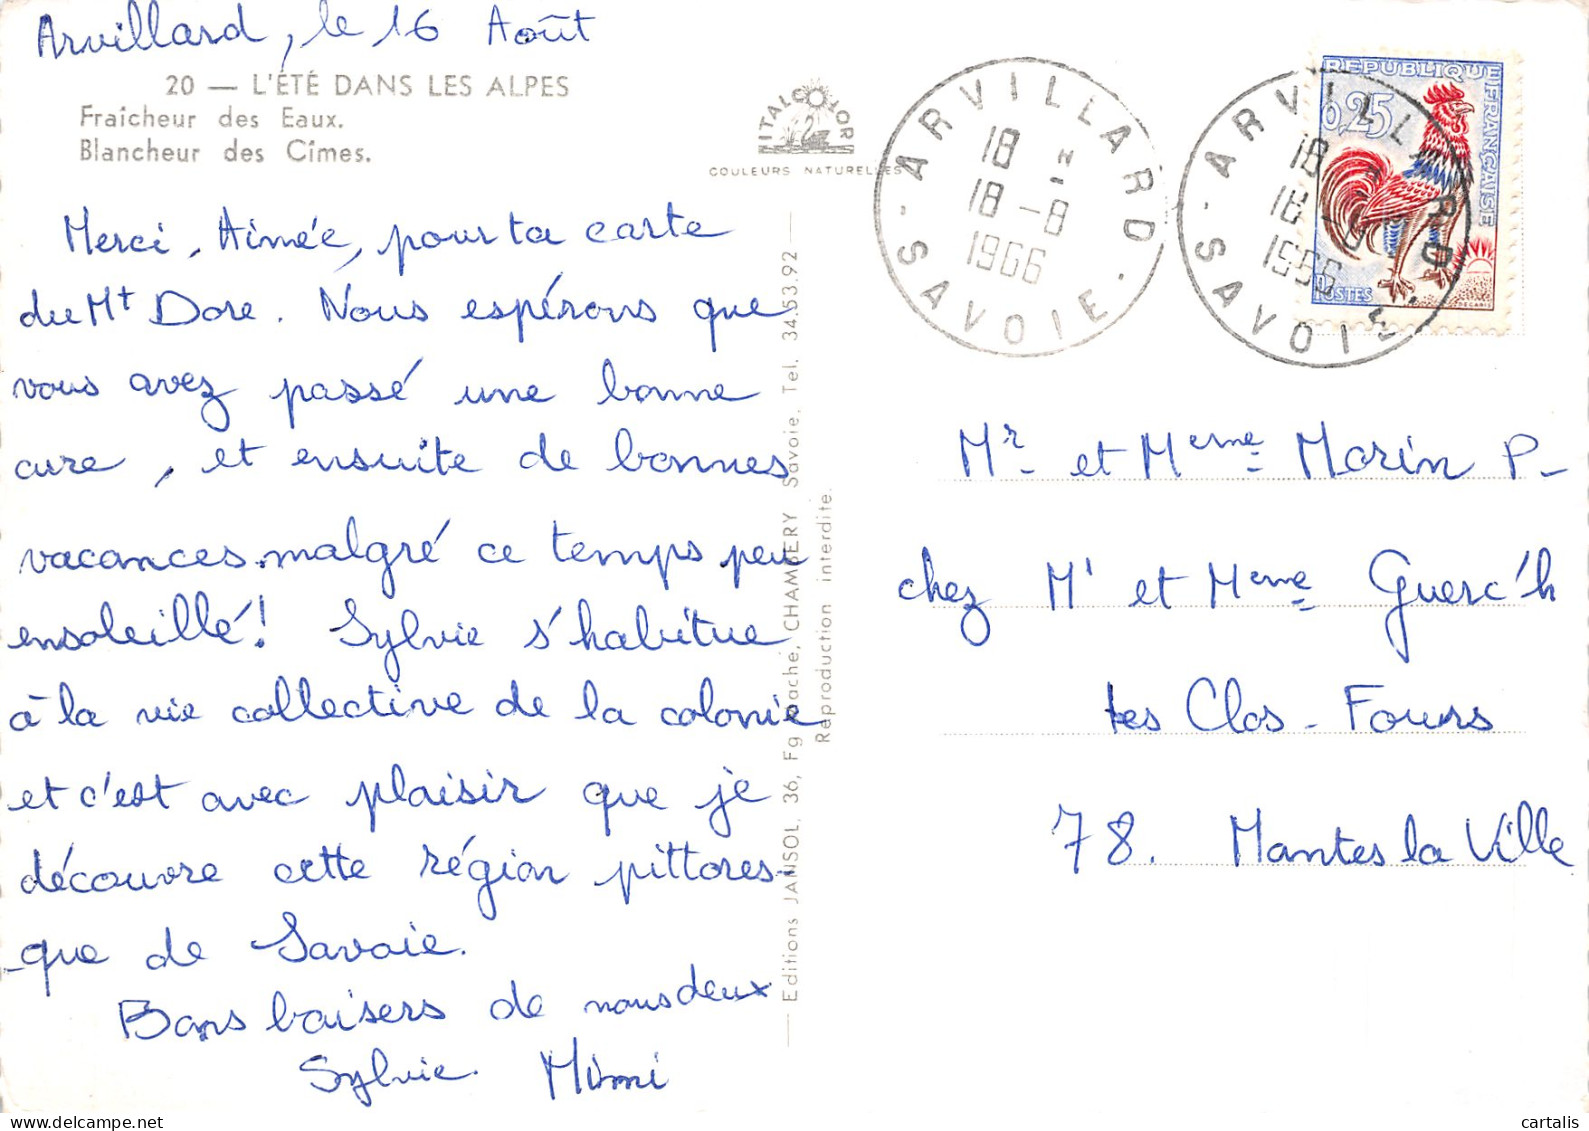 Arvillard, le 16 Août
20 — L'ÉTÉ DANS LES ALPES
Fraîcheur des Eaux.
Blancheur des Cîmes.
ITALCOLOR
COULEURS NATURELLES
Merci, Aimée, pour ta carte
du Mt Dore. Nous espérons que
vous avez passé une bonne
cure, et ensuite de bonnes
vacances malgré ce temps peu
ensoleillé! Sylvie s'habitue
à la vie collective de la colonie
et c'est avec plaisir que je
découvre cette région pittores-
-que de Savoie.
Bons baisers de nous deux
Sylvie Mimi
Editions JANSOL, 36, Fg Mache, CHAMBERY Savoie, Tel. 34.53.92
Reproduction interdite.
ARVILLARD
18
18-8
1966
SAVOIE
ARVILLARD
18
18-8
1966
SAVOIE
REPUBLIQUE FRANÇAISE
0,25
POSTES
Mr et Meme Morin P-
chez Mr et Meme Guerc'h
Les Clos-Fours
78. Mantes la Ville
cartalis
www.delcampe.net